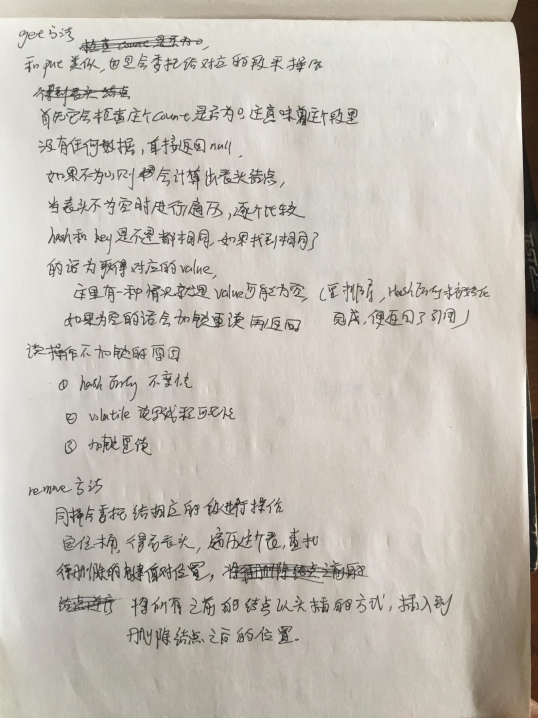 get方法
和put类似,也是会委托给对应的段来操作
首先它会检查这个count是否为0,这意味着这个段里
没有任何数据,直接返回null,
如果不为0,则会计算出表头结点,
当表头不为空时进行遍历,逐个比较
hash和key是不是都相同,如果找到相同了
的话为取得对应的value,
这里有一种情况就是value可能为空,(重排序,HashEntry未初始化
如果为空的话会加锁重读再返回 完成,便返回了引用)
读操作不加锁的原因
① hashEntry 不变性
② volatile 读写线程可见性
③ 加锁重读
remove方法
同样会委托给相应的段进行操作
定位桶,得到表头,遍历这个表,查找
待删除的键值对位置,
将所有之前的结点以头插的方式,插入到
删除结点之后的位置。